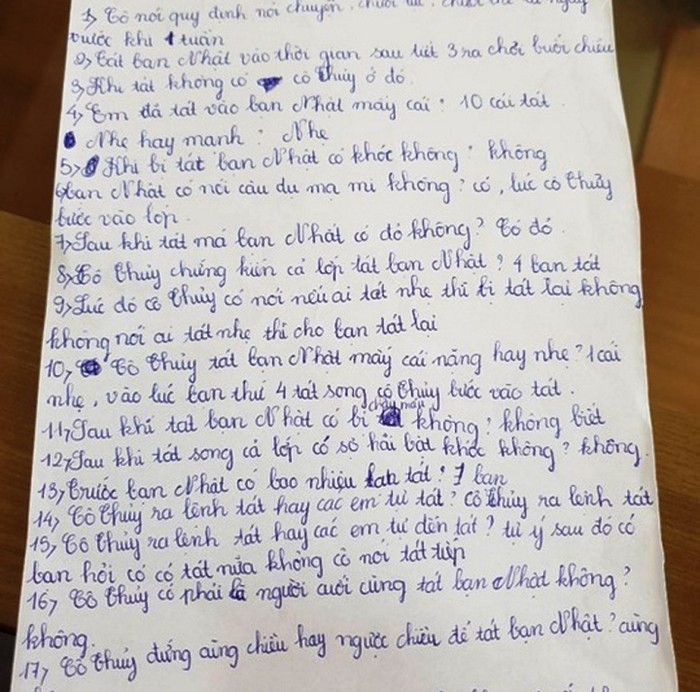 1, Cô nói quy định nói chuyện, chửi
trước khi 1 tuần
2, Tát bạn Nhật vào thời gian sau tiết 3 ra chơi buổi chiều
3, Khi tát không có cô Thủy ở đó
4, Em đã tát vào bạn Nhật mấy cái? 10 cái tát.
Nhẹ hay mạnh? Nhẹ
5, Khi bị tát bạn Nhật có khóc không? không
6, bạn Nhật có nói câu dụ mạ mi không? có, lúc cô Thủy
bước vào lớp.
7, Sau khi tát má bạn Nhật có đỏ không? Có đỏ.
8, Cô Thủy chứng kiến cả lớp tát bạn Nhật? 4 bạn tát
9, Lúc đó cô Thủy có nói nếu ai tát nhẹ thì bị tát lại không
không nói ai tát nhẹ thì cho bạn tát lại
10, Cô Thủy tát bạn Nhật mấy cái nặng hay nhẹ? 1 cái
nhẹ, vào lúc bạn thứ 4 tát song cô Thủy bước vào tát.
11, Sau khi tát bạn Nhật có bị chảy máu không? không biết
12, Sau khi tát song cả lớp có sợ hãi bật khóc không? không.
13, Trước bạn Nhật có bao nhiêu bạn tát? 7 bạn
14, Cô Thủy ra lệnh tát hay các em tự tát? cô Thủy ra lệnh tát
15, Cô Thủy ra lệnh tát hay các em tự đến tát? tự ý sau đó có
bạn hỏi cô có tát nữa không cô nói tát tiếp
16, Cô Thủy có phải là người cuối cùng tát bạn Nhật không?
không.
17, Cô Thủy đứng cùng chiều hay ngược chiều để tát bạn Nhật? cùng